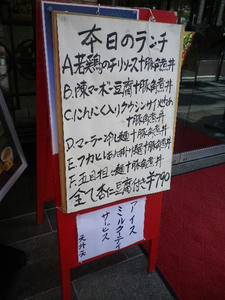 本日のランチ
A.若鶏のチリソース+豚角煮丼
B.陳マーボー豆腐+豚角煮丼
C.にんにく入りクウシンサイ炒め
+豚角煮丼
D.マーラー冷し麺+豚角煮丼
麺+豚角煮丼
F.五目担々麺+豚角煮丼
全て杏仁豆腐付き ¥790
アイス
ミルクティ
サービス